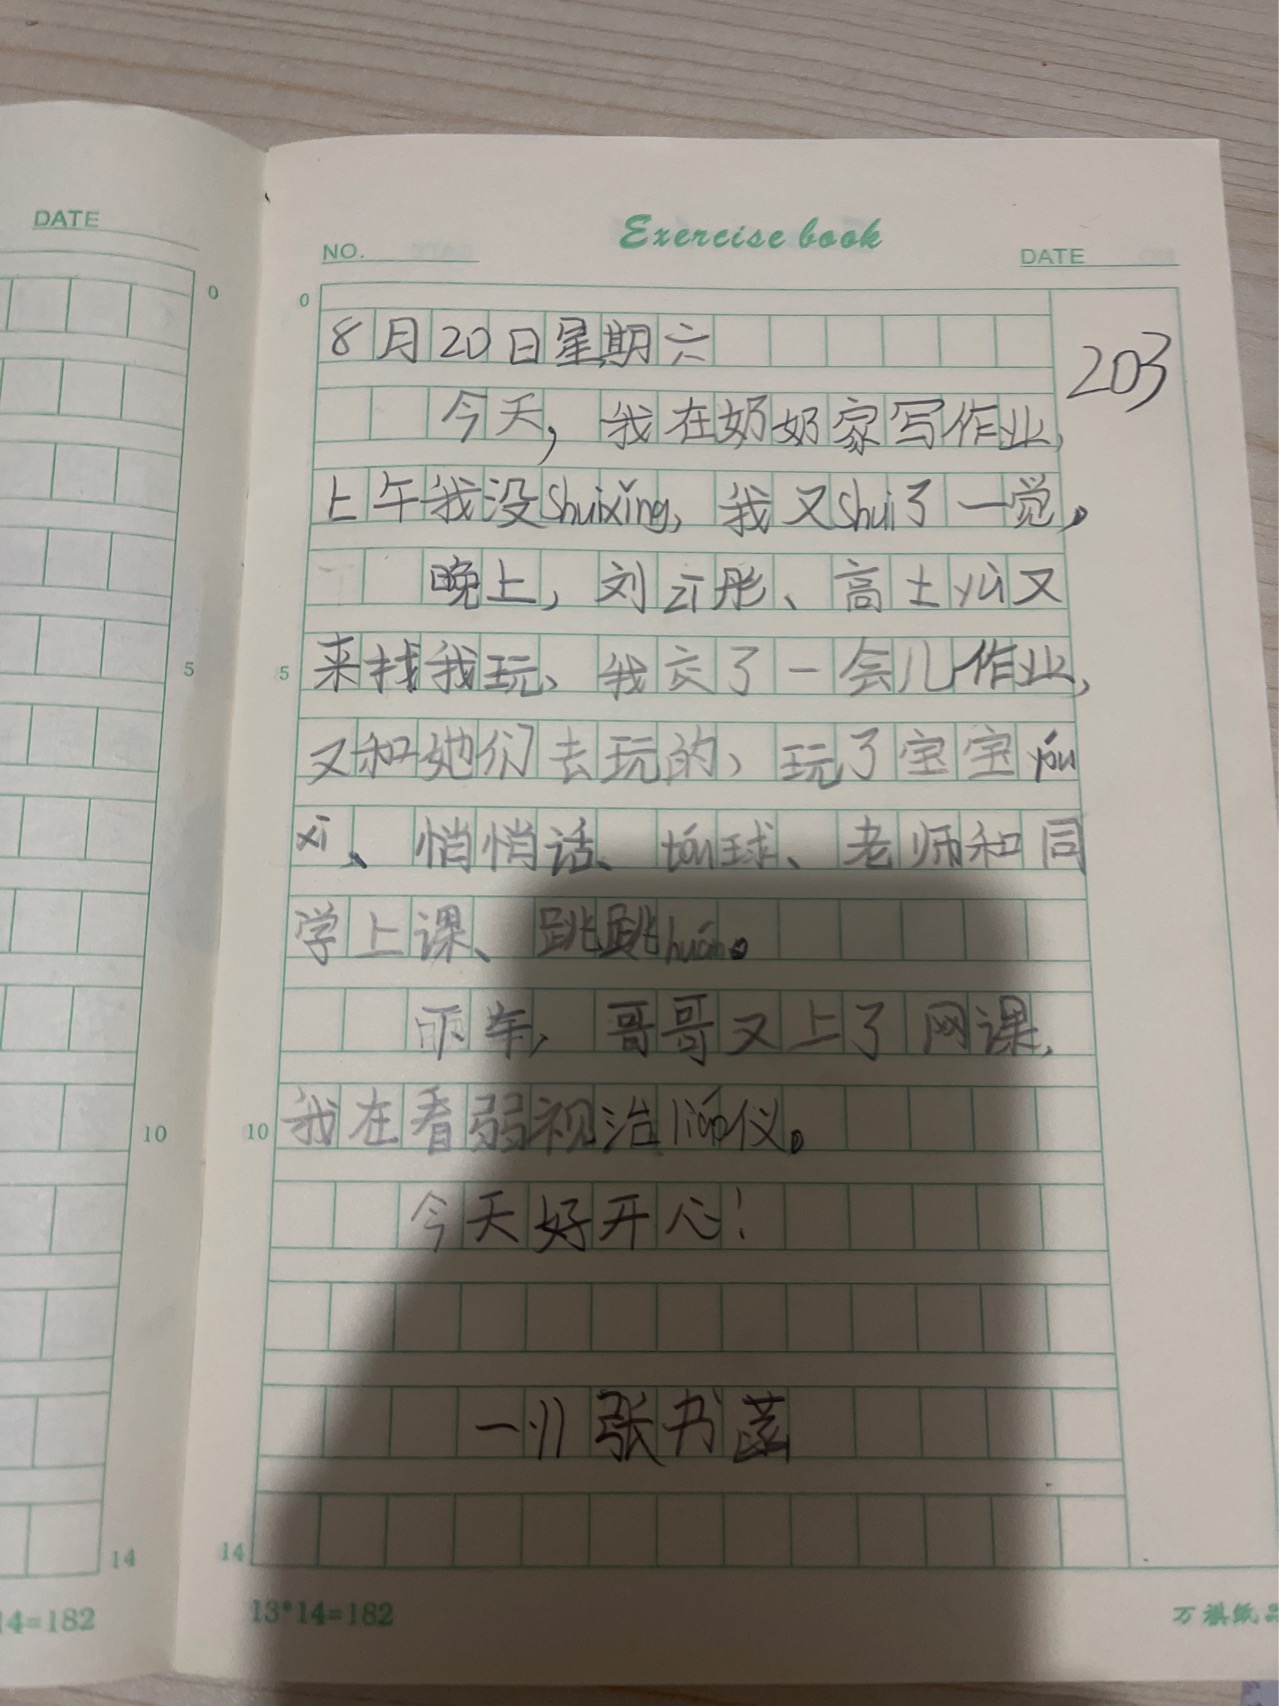 DATE
0
5
10
14
14=182
Exercise book
NO.
DATE
0
8月20日星期六
203
今天，我在奶奶家写作业，
上午我没shuìxǐng，我又shuì了一觉。
晚上，刘云彤、高土yù又
5
来找我玩、我交了一会儿作业，
又和她们去玩的，玩了宝宝yóu
xì、悄悄话、tóu球、老师和同
学上课、跳跳huán。
哥哥又上了网课，
10
我在看弱视治liáo仪。
今天好开心！
张书
14
13*14=182
万祺纸品